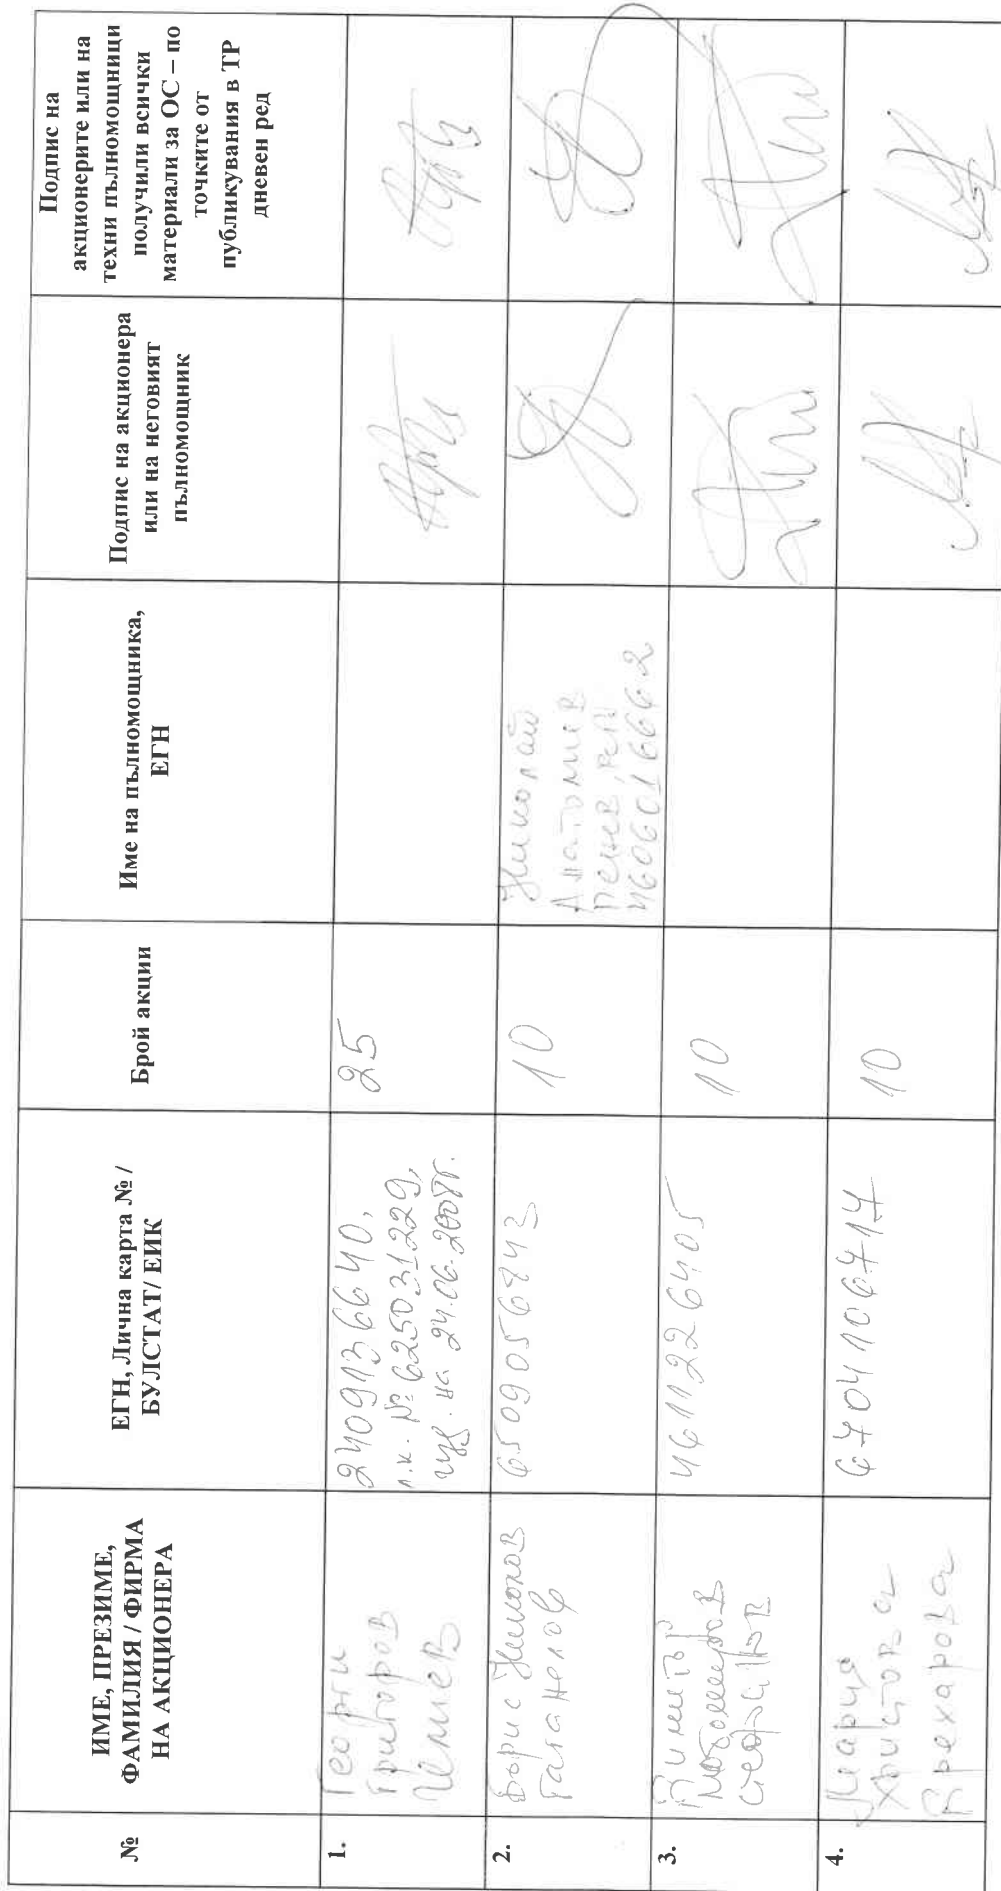 №
ИМЕ, ПРЕЗИМЕ,
ФАМИЛИЯ / ФИРМА
НА АКЦИОНЕРА
ЕГН, Лична карта № /
БУЛСТАТ/ ЕИК
Брой акции
Име на пълномощника,
ЕГН
Подпис на акционера
или на неговият
пълномощник
Подпис на
акционерите или на
техни пълномощници
получили всички
материали за ОС – по
точките от
публикувания в ТР
дневен ред
1.
Георги
Григоров
2409136640,
л.к. № 625031229,
изд. на 24.06.2008г.
25
2.
Борис
6509056843
10
Николай
Пенев
4606016662
3.
4611226405
10
4.
Мария
Христова
6704110671
10